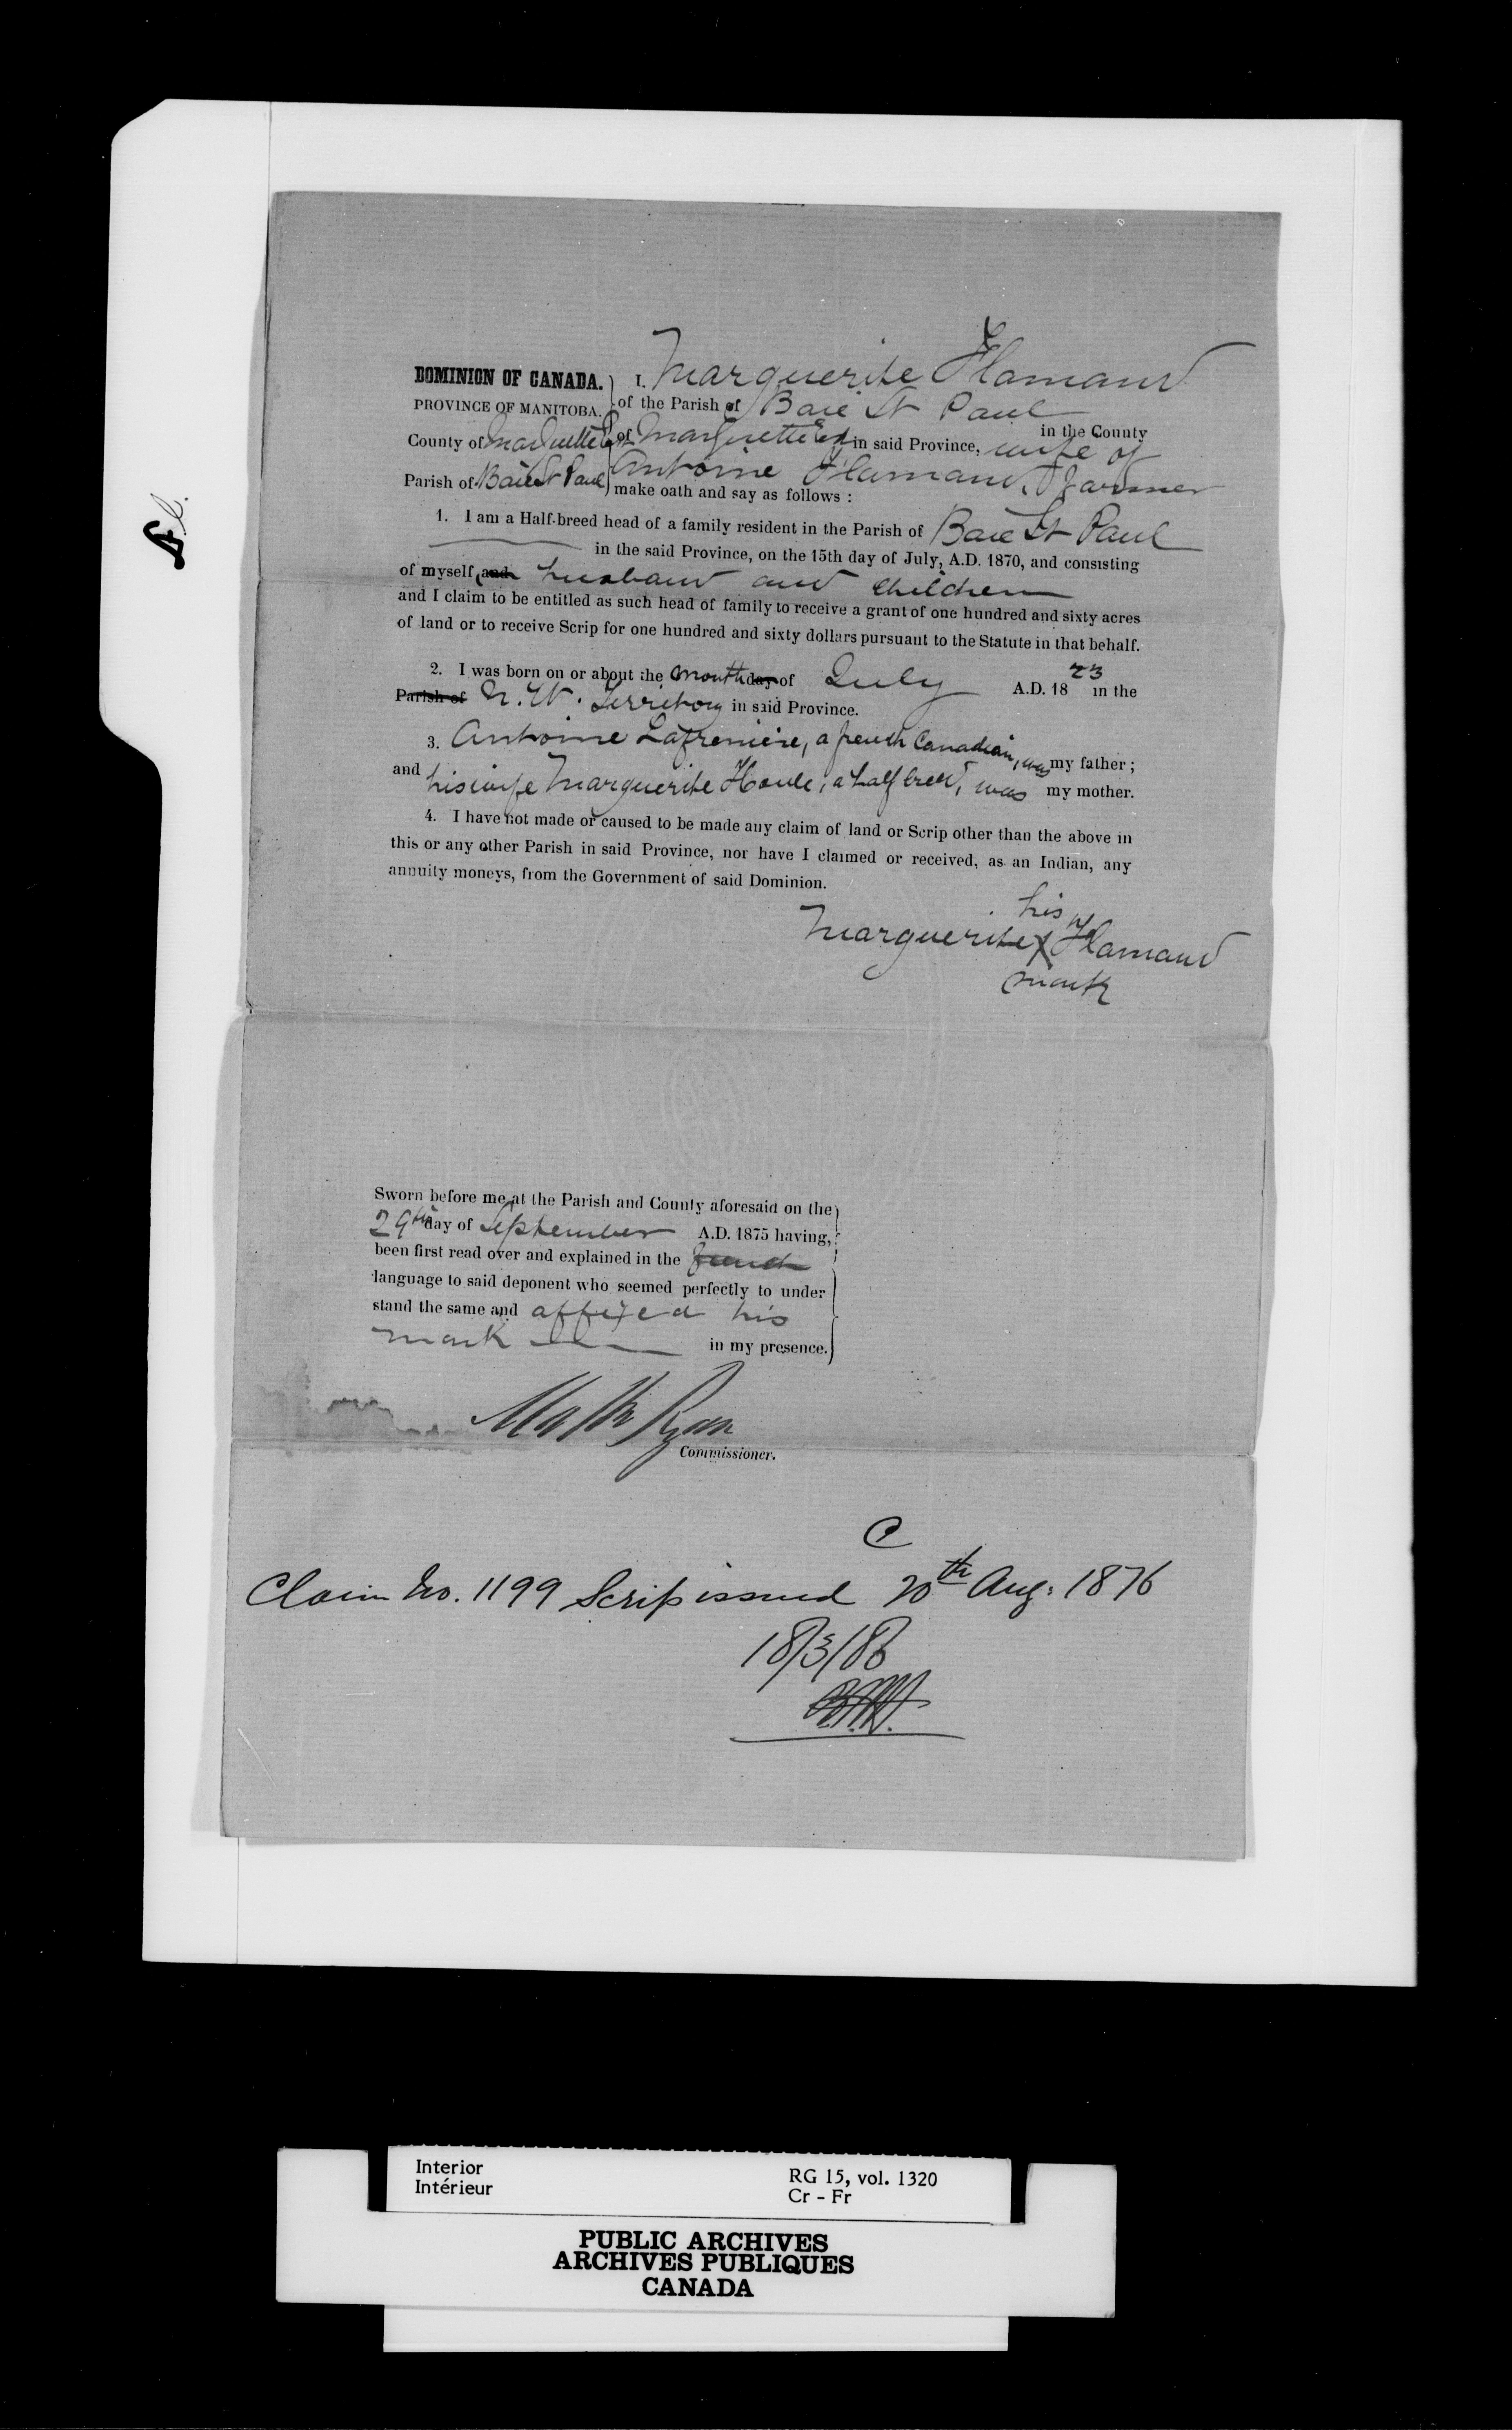 Fl.
DOMINION OF CANADA.
PROVINCE OF MANITOBA.
County of Marquette E
Parish of Baie St Paul
I, Marguerite Flamand
of the Parish of Baie St Paul
in the County
of Marquette Est in said Province, wife of
Antoine Flamand, Farmer
make oath and say as follows :
1. I am a Half-breed head of a family resident in the Parish of Baie St Paul
in the said Province, on the 15th day of July, A.D. 1870, and consisting
of myself, and husband and Children
and I claim to be entitled as such head of family to receive a grant of one hundred and sixty acres
of land or to receive Scrip for one hundred and sixty dollars pursuant to the Statute in that behalf.
2. I was born on or about the month day of July A.D. 18 23 in the
Parish of N. W. Territory in said Province.
3. Antoine Lafreniere, a french Canadian, was my father ;
and his wife Marguerite Houle, a half breed, was my mother.
4. I have not made or caused to be made any claim of land or Scrip other than the above in
this or any other Parish in said Province, nor have I claimed or received, as an Indian, any
annuity moneys, from the Government of said Dominion.
his
Marguerite X Flamand
mark
Sworn before me at the Parish and County aforesaid on the
29th day of September A.D. 1875 having,
been first read over and explained in the french
language to said deponent who seemed perfectly to under
stand the same and affixed his
mark in my presence.
Matt Ryan
Commissioner.
C
Claim No. 1199 Scrip issued 20th Aug: 1876
18/3/86
Interior
Intérieur
RG 15, vol. 1320
Cr - Fr
PUBLIC ARCHIVES
ARCHIVES PUBLIQUES
CANADA